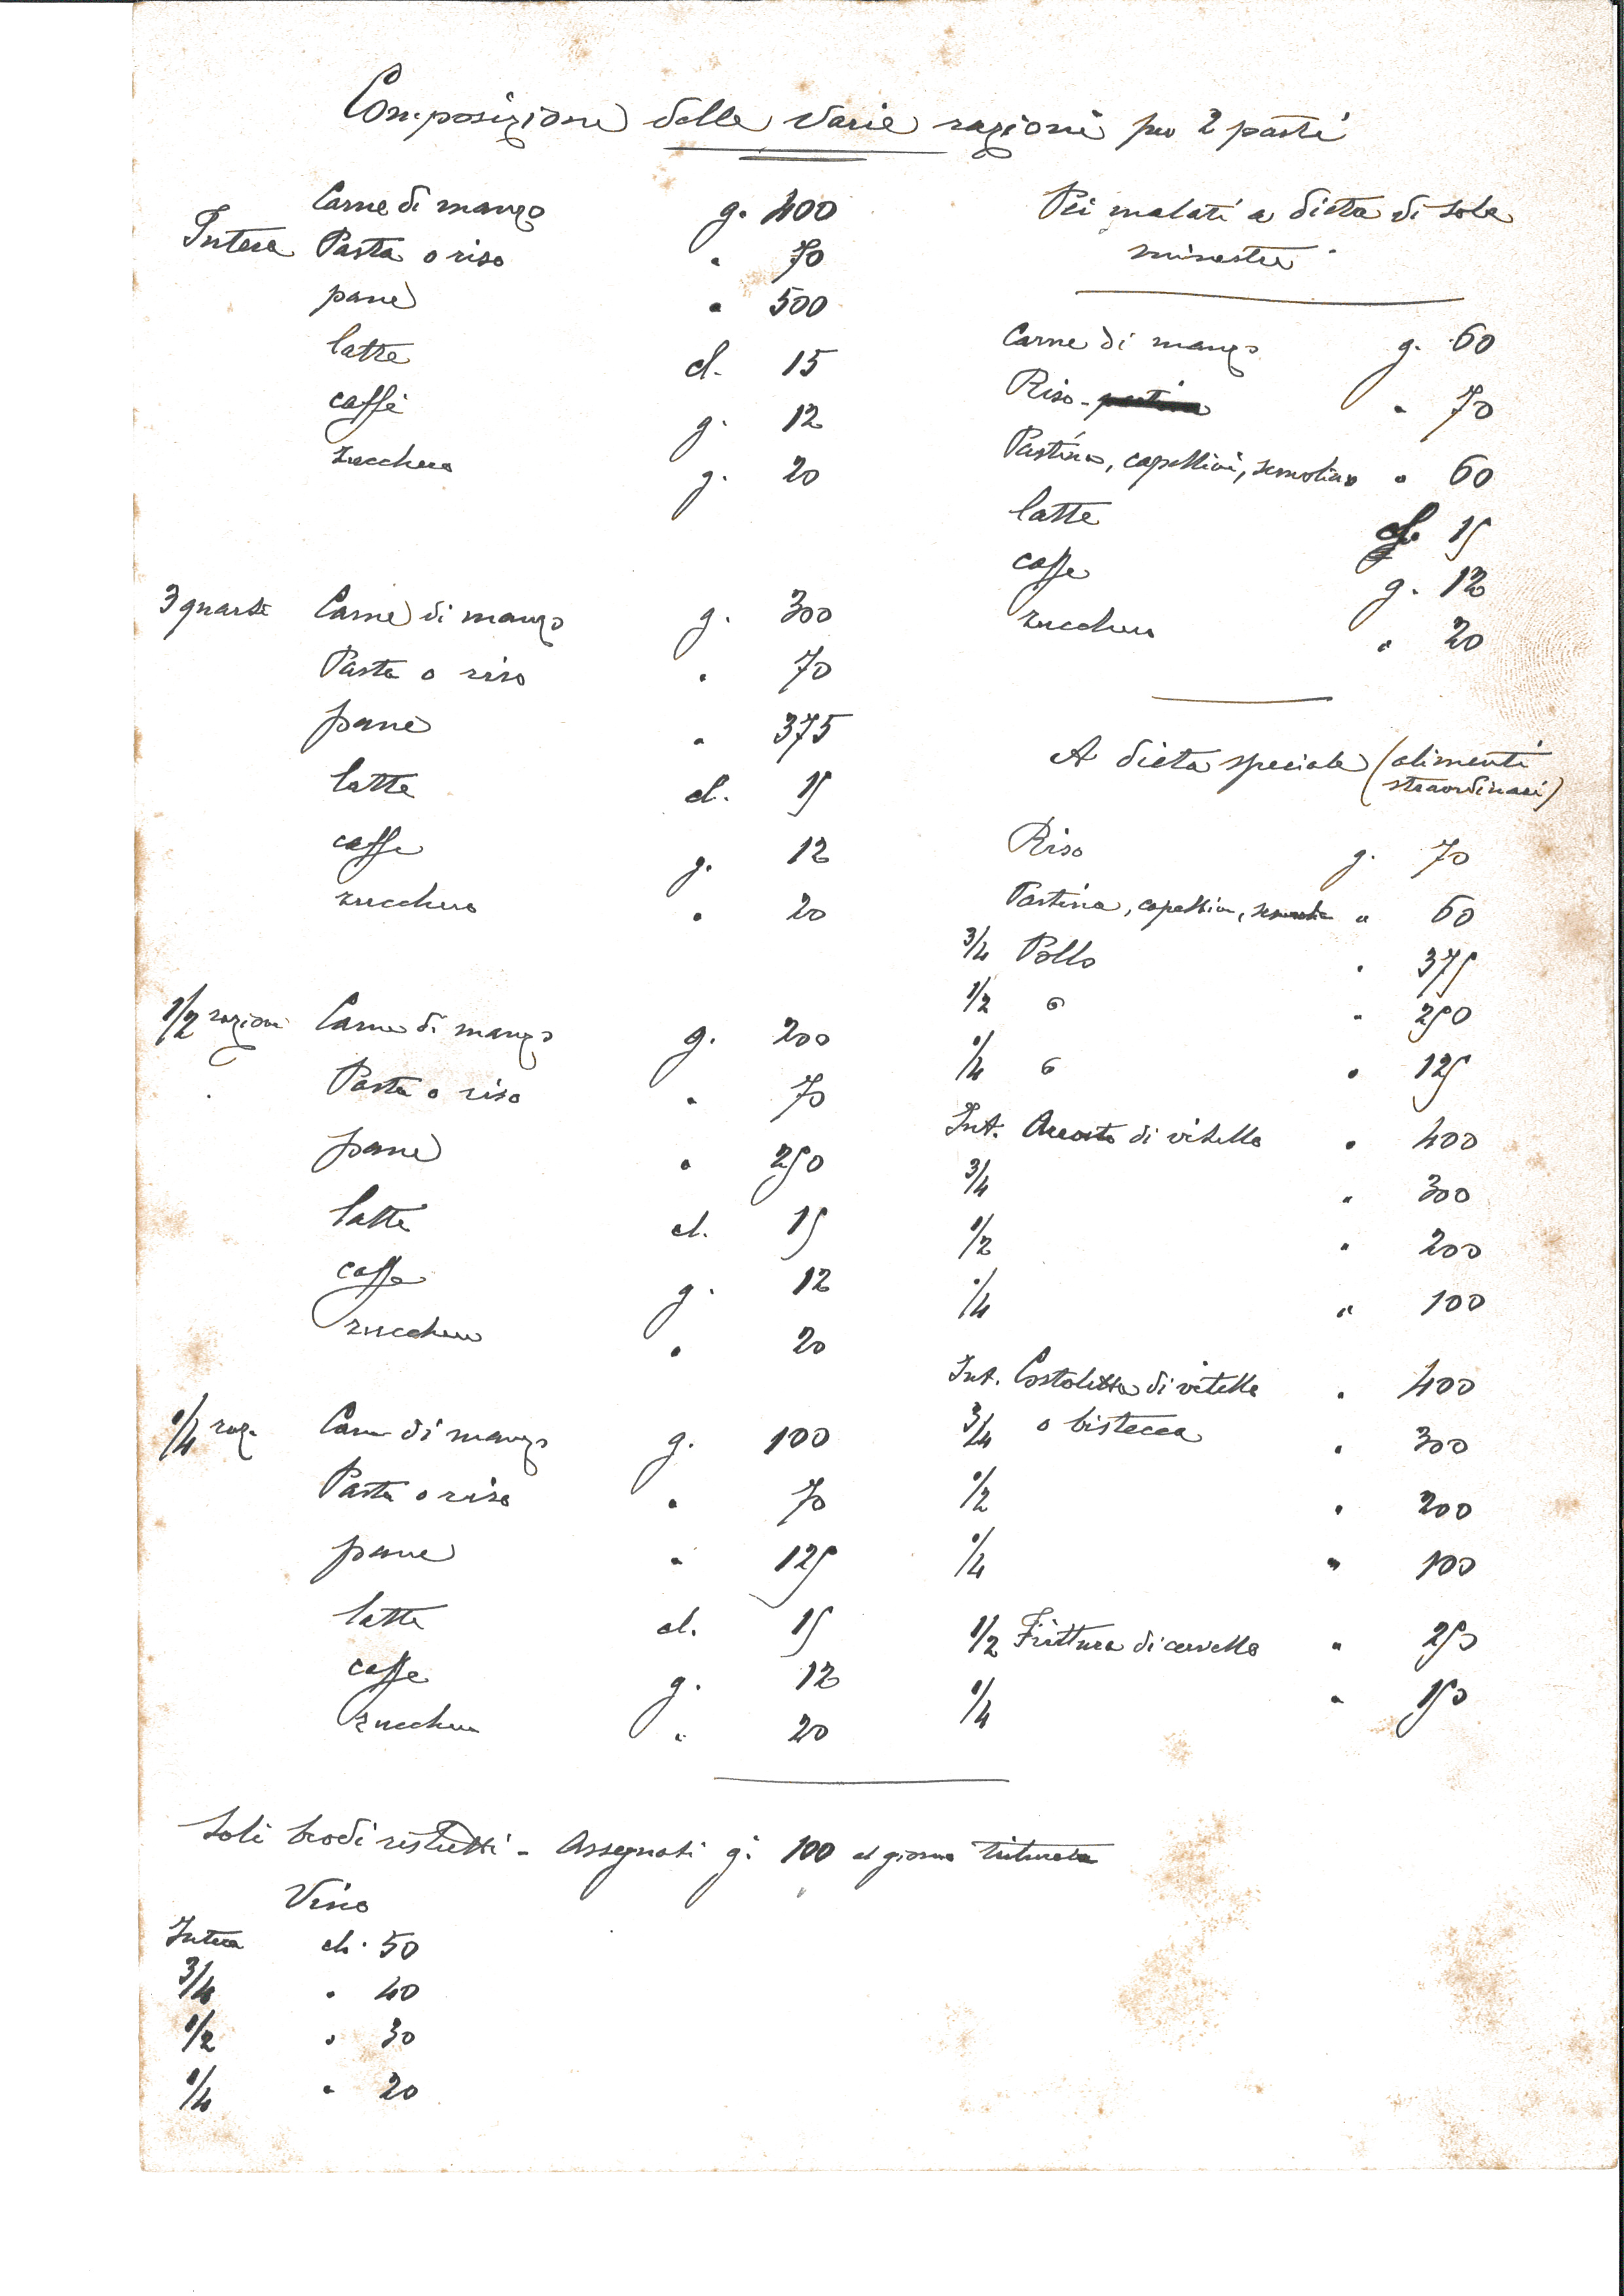 Composizione delle varie razioni per 2 pasti
Intera Carne di manzo g. 400
Pasta o riso " 70
pane " 500
latte cl. 15
caffè g. 12
zucchero g. 20
3 quarti Carne di manzo g. 300
Pasta o riso " 70
pane " 375
latte cl. 15
caffe g. 12
zucchero " 20
1/2 razione Carne di manzo g. 200
Pasta o riso " 70
pane " 250
latte cl. 15
caffe g. 12
zucchero " 20
1/4 raz. Carne di manzo g. 100
Pasta o riso " 70
pane " 125
latte cl. 15
caffe g. 12
zucchero " 20
Pei malati a dieta di sole
minestre
Carne di manzo g. 60
Riso - pastina " 70
Pastina, capellini, semolino " 60
latte cl. 15
caffe g. 12
zucchero " 20
A dieta speciale (alimenti
straordinari)
Riso g. 70
Pastina, capellini, semolino " 60
3/4 Pollo " 375
1/2 " " 250
1/4 " " 125
Int. Arrosto di vitello " 400
3/4 " 300
1/2 " 200
1/4 " 100
Int. Costoletta di vitello " 400
3/4 o bistecca " 300
1/2 " 200
1/4 " 100
1/2 Frittura di cervello " 250
1/4 " 150
Soli brodi ristretti - Assegnati g. 100 al giorno triturata
Vino
Intera cl. 50
3/4 " 40
1/2 " 30
1/4 " 20